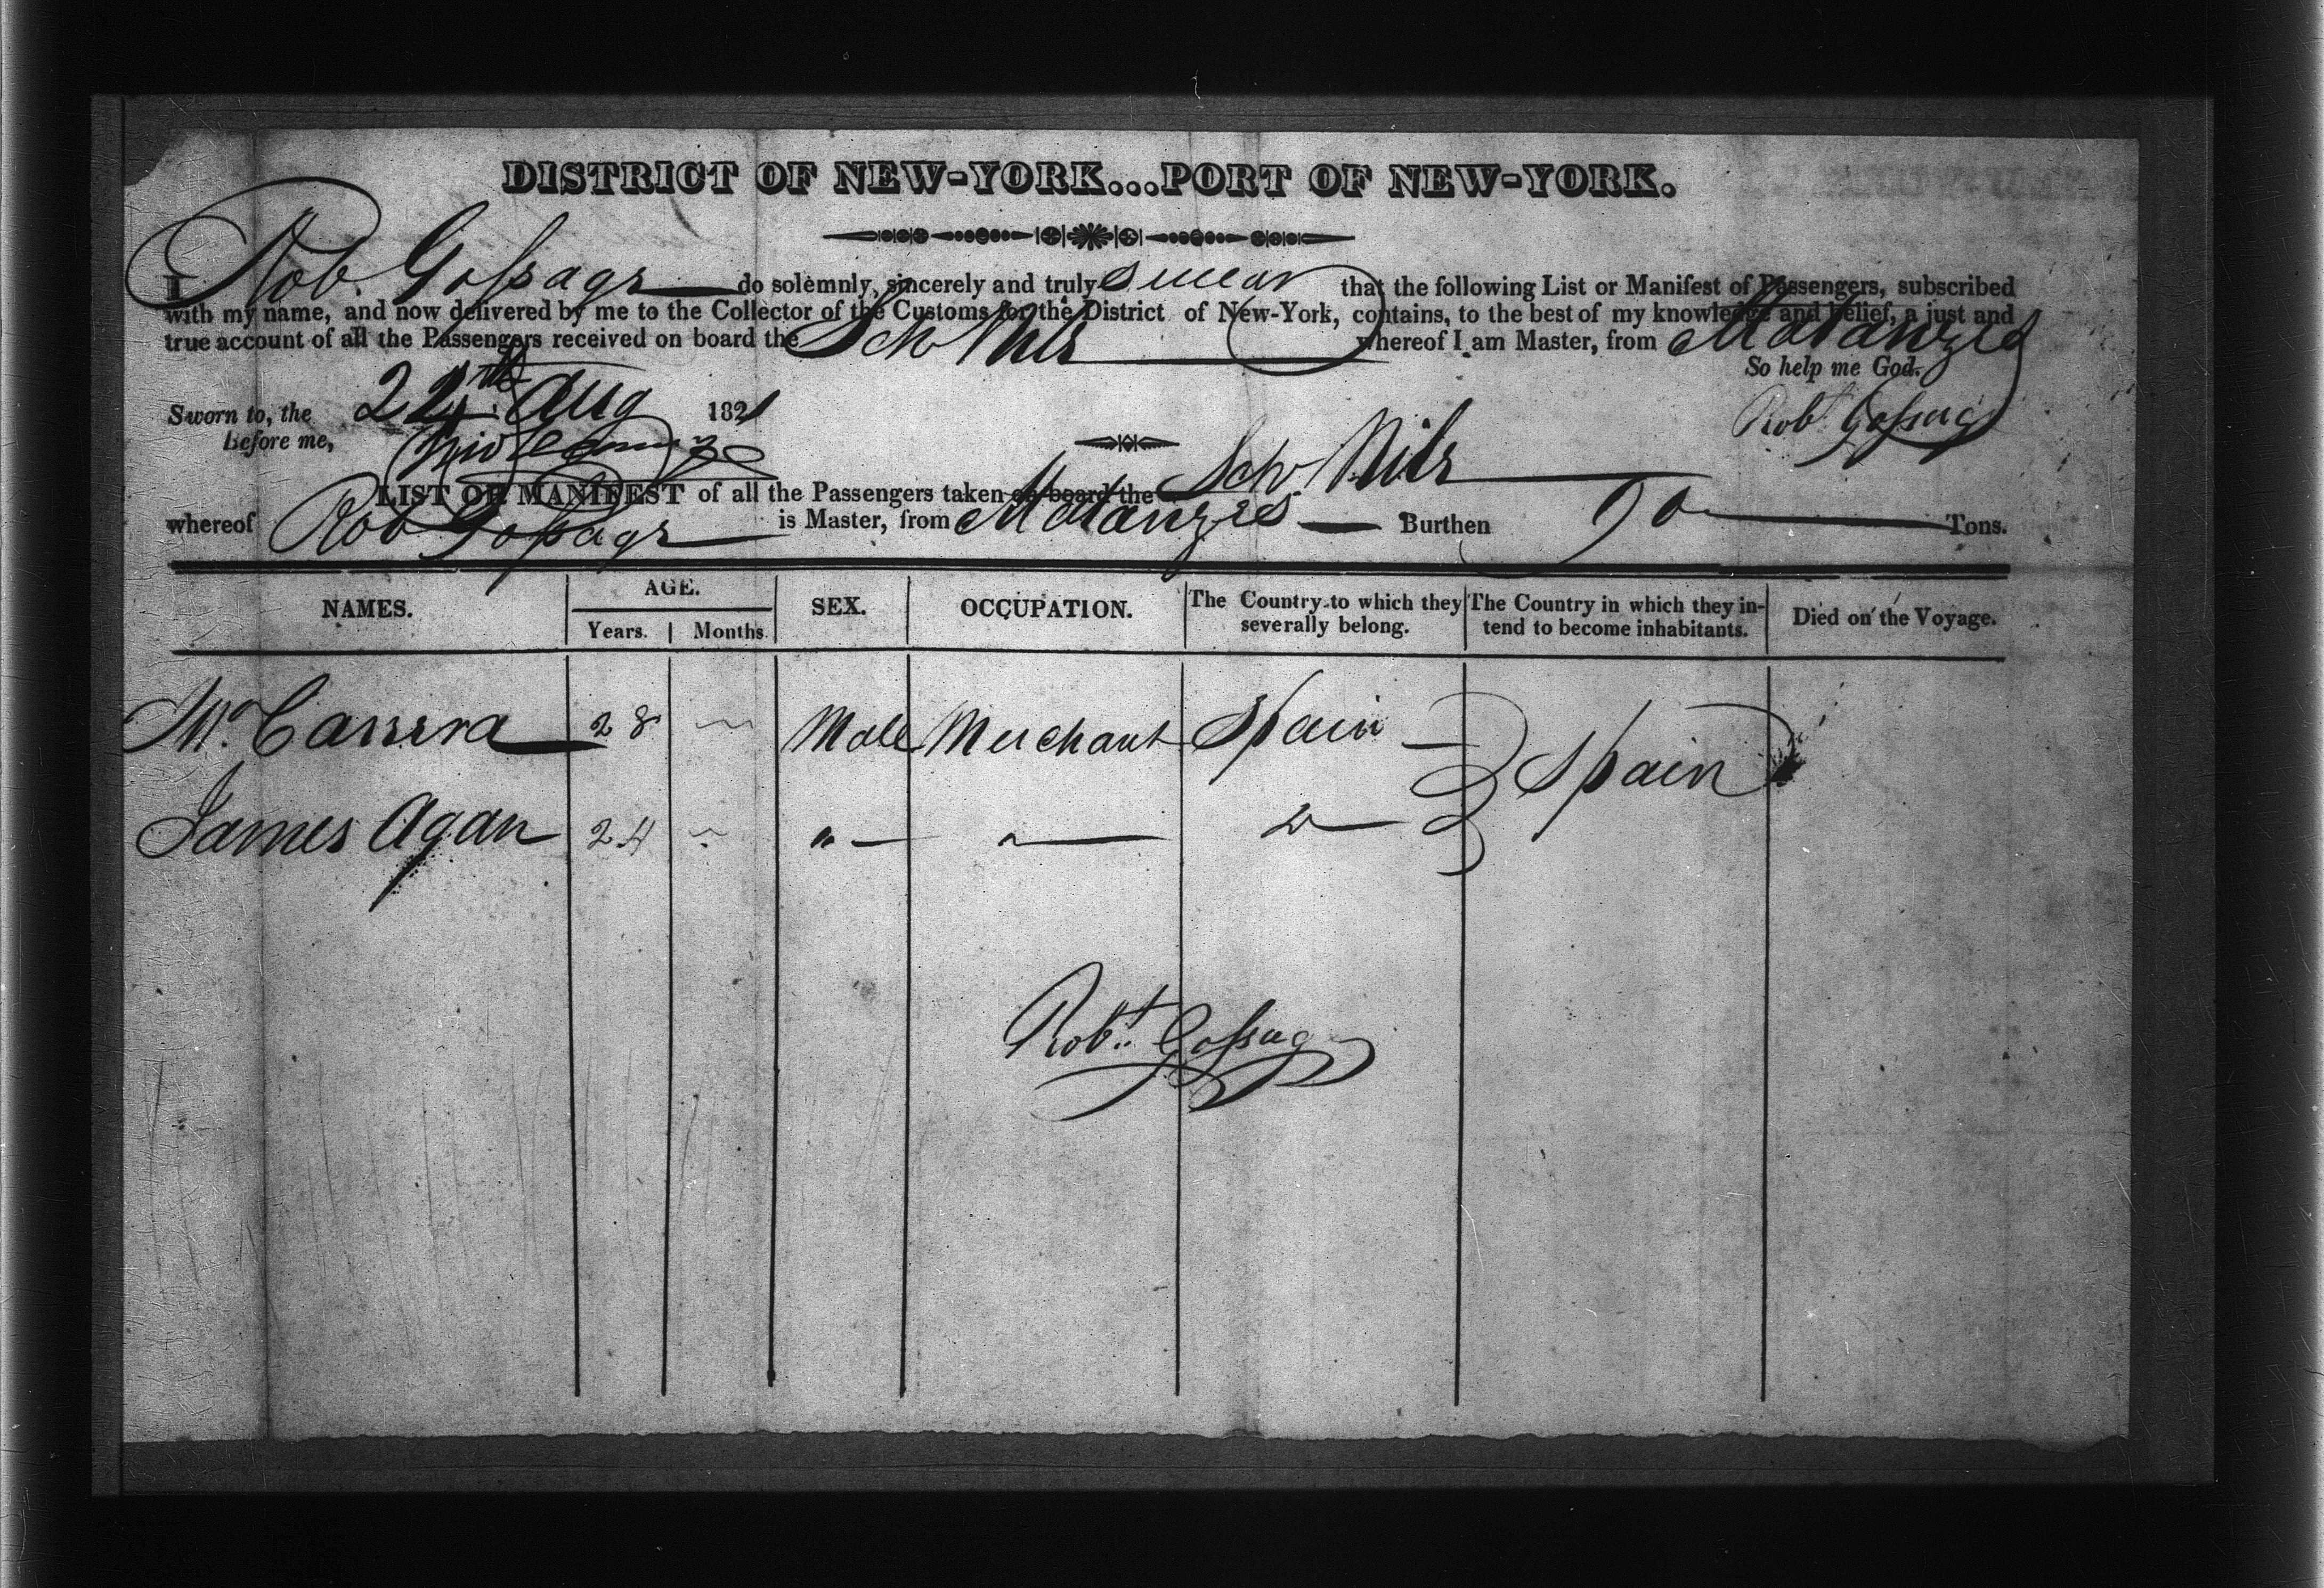 DISTRICT OF NEW-YORK...PORT OF NEW-YORK.
I Rob. Gossage do solemnly, sincerely and truly swear that the following List or Manifest of Passengers, subscribed
with my name, and now delivered by me to the Collector of the Customs for the District of New-York, contains, to the best of my knowledge and belief, a just and
true account of all the Passengers received on board the Schr whereof I am Master, from Matanzes
So help me God.
Sworn to, the 24th Aug 1821
Robt Gossage
Before me,
LIST OR MANIFEST of all the Passengers taken on board the Schr
whereof Rob Gossage is Master, from Matanzes Burthen 90 Tons.
NAMES. AGE. SEX. OCCUPATION. The Country to which they severally belong. The Country in which they intend to become inhabitants. Died on the Voyage.
Years. Months.
Mr. Carrera 28 Male Merchant Spain
Spain
James Agan 24 " " Do
Robt. Gossage